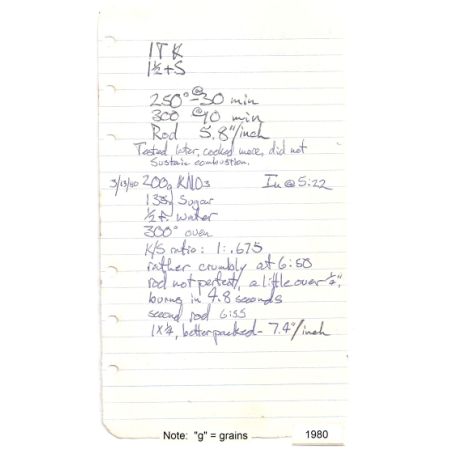 1 T K
1½ t S
250° @ 30 min
300 @ 90 min
Rod 5.8"/inch
Tested later, cooked more, did not
sustain combustion.
3/13/80 200g KNO3 In @ 5:22
135g Sugar
½ c. water
300° oven
K/S ratio: 1:.675
rather crumbly at 6:50
rod not perfect, a little over ¼",
burns in 4.8 seconds
second rod 6:55
1 x ¼, better packed - 7.4"/inch
Note: "g" = grains
1980